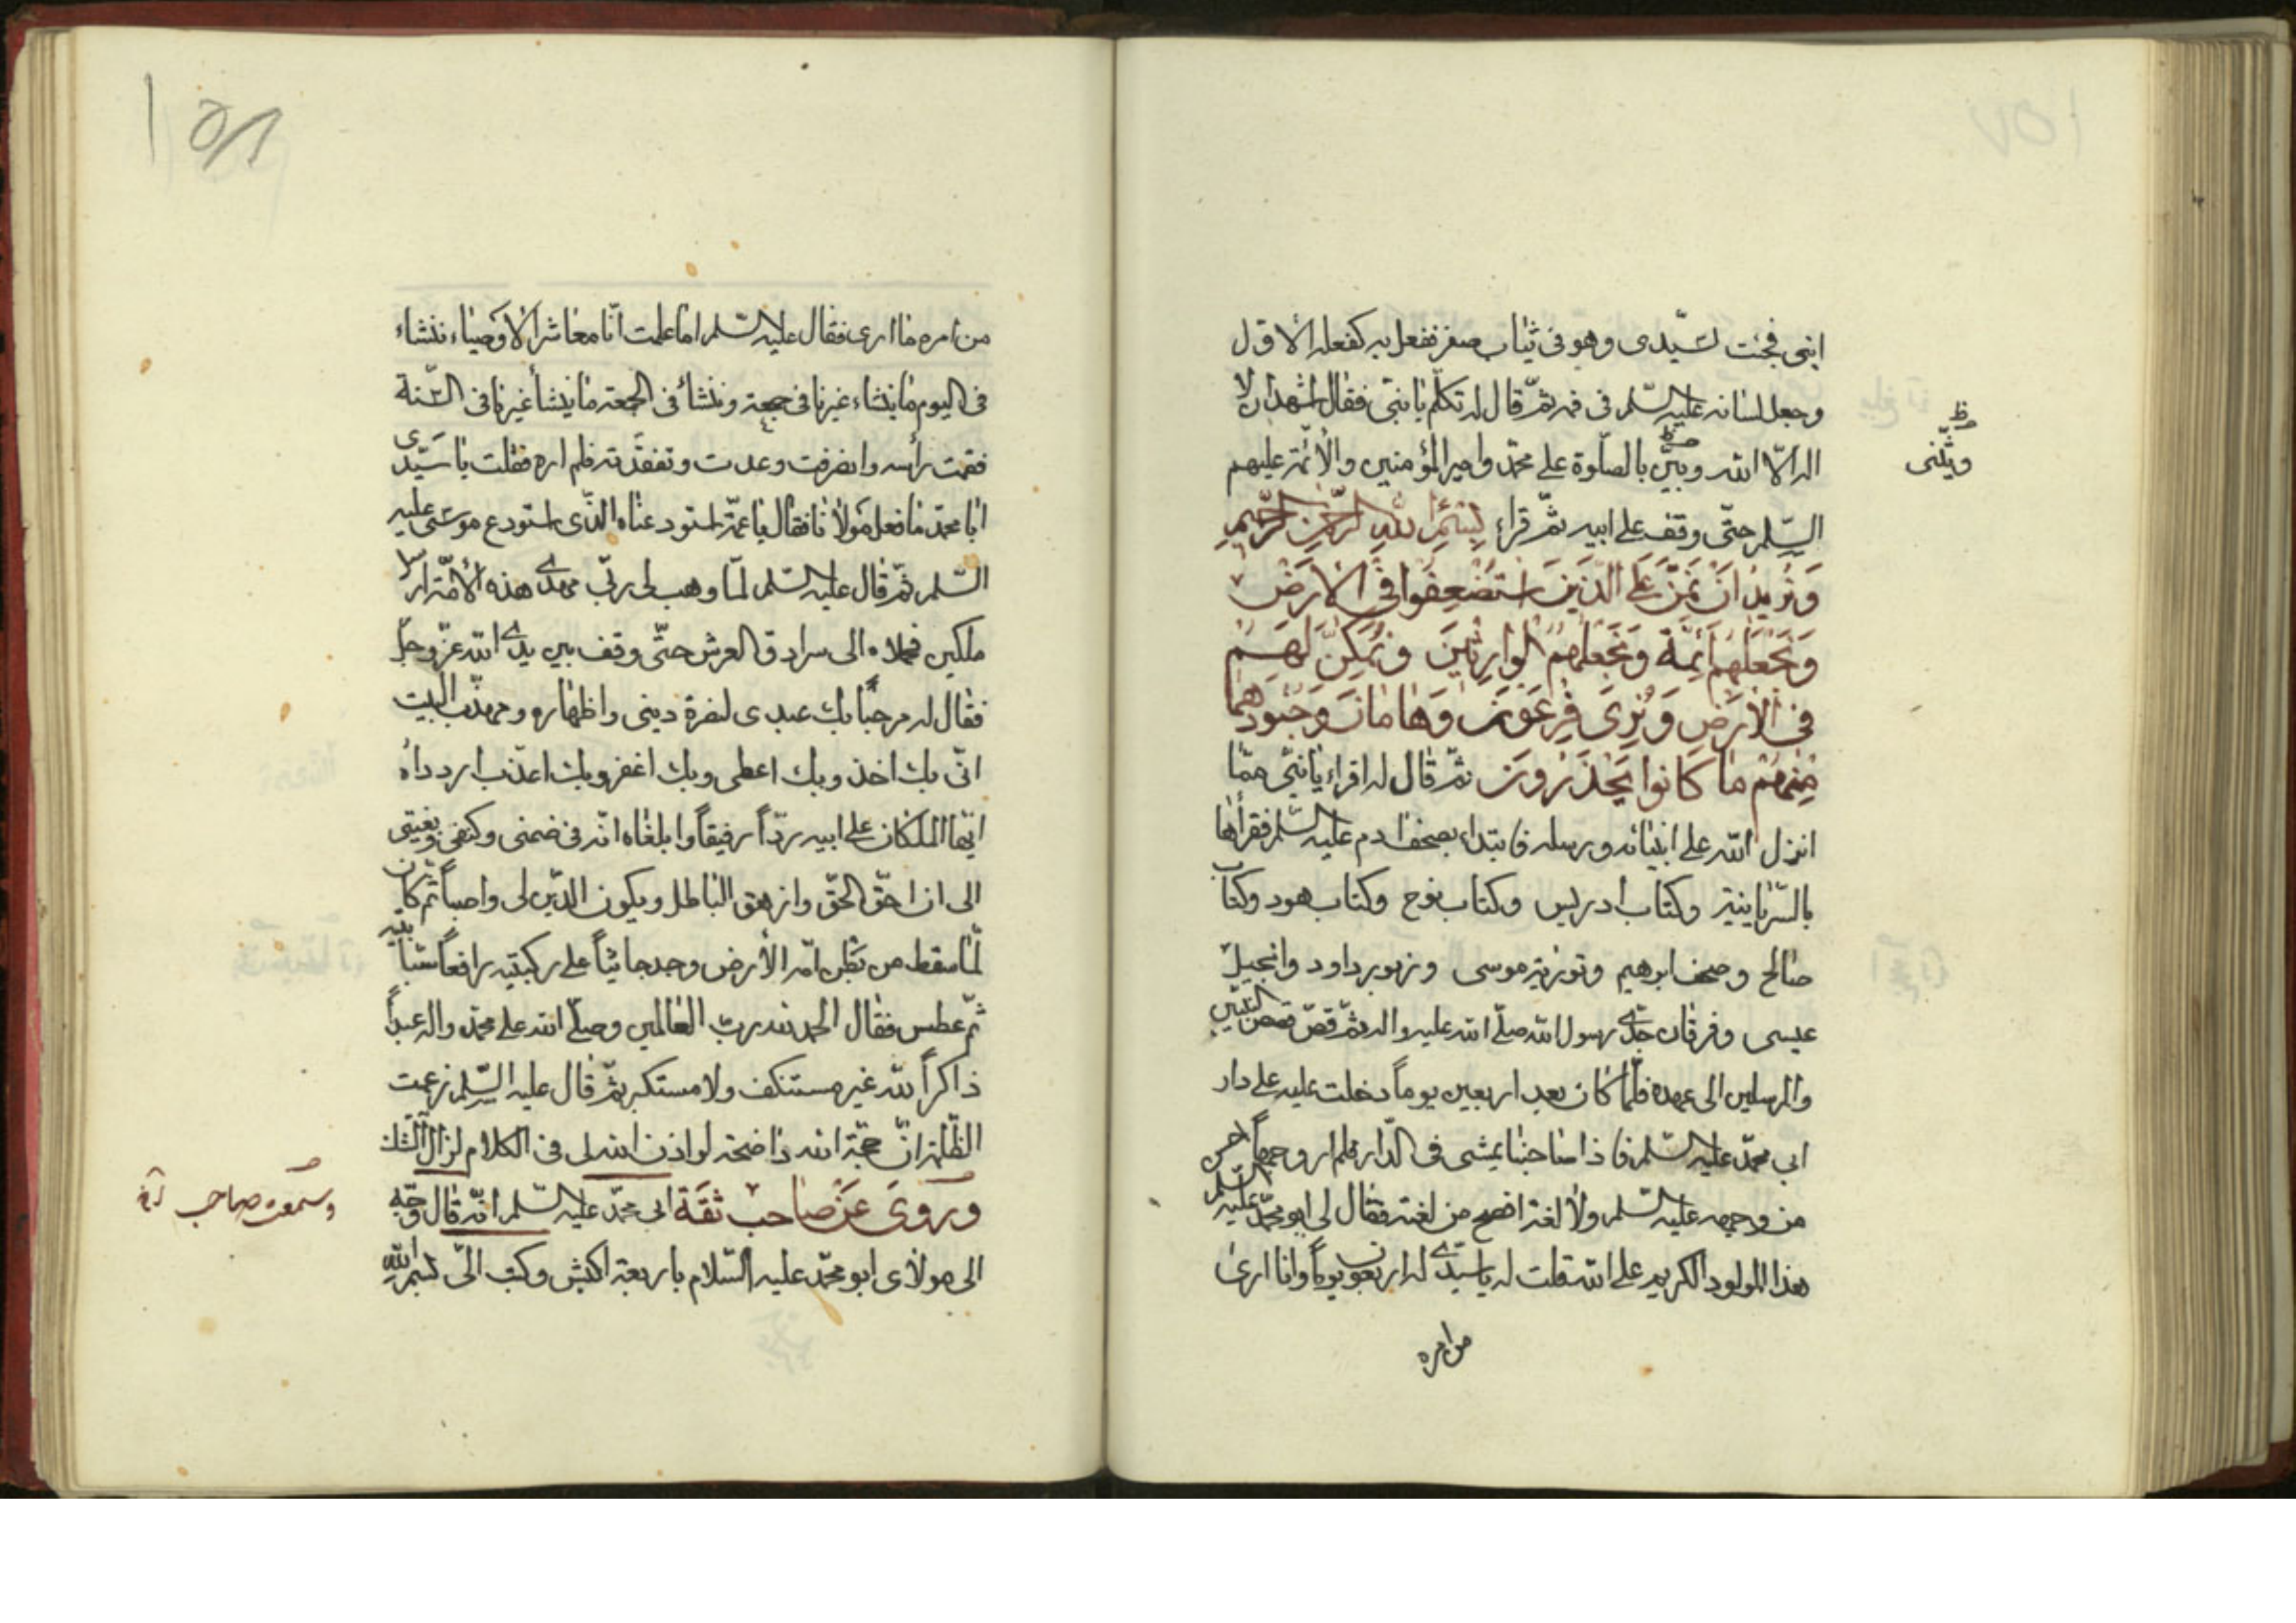 ابنى فجئت بسيّدى وهو فى ثياب صفر ففعل به كفعله الاوّل
وجعل لسانه عليه السّلم فى فمه ثمّ قال له تكلّم يا بنىّ فقال اشهد ان لا
اله الّا الله وثنّى بالصلوة على محمّد وامير المؤمنين والأئمّة عليهم
ويثنّى
السّلم حتّى وقف على ابيه ثمّ قراء بِسْمِ اللهِ الرَّحْمنِ الرَّحيمِ
وَنُريدُ اَنْ نَمُنَّ عَلَى الَّذينَ اسْتُضْعِفُوا فِى الْاَرْضِ
وَنَجْعَلَهُمْ اَئِمَّةً وَنَجْعَلَهُمُ الْوارِثينَ وَنُمَكِّنَ لَهُمْ
فِى الْاَرْضِ وَنُرِىَ فِرْعَوْنَ وَهامانَ وَجُنُودَهُما
مِنْهُمْ ما كانوا يَحْذَرُونَ ثمّ قال له اقراء يا بنىّ ممّا
انزل الله على انبيائه ورسله فابتداء بصحف ادم عليه السّلم فقرأها
بالسّريانيّة وكتاب ادريس وكتاب نوح وكتاب هود وكتاب
صالح وصحف ابرهيم وتورية موسى وزبور داود وانجيل
عيسى وفرقان جدّى رسول الله صلّى الله عليه واله ثمّ قصّ قصص النبيّين
والمرسلين الى عهده فلمّا كان بعد اربعين يوماً دخلت عليه على دار
ابى محمّد عليه السّلم فاذا صاحبنا يمشى فى الدّار فلم ار وجهاً احسن
من وجهه عليه السّلم ولا لغة افصح من لغته فقال لى ابو محمّد عليه السّلم
هذا المولود الكريم على الله قلت له يا سيّدى له اربعون يوماً وانا ارى
من امره
١٥٨
من امره ما ارى فقال عليه السّلم اما علمت انّا معاشر الاوصياء ننشاء
فى اليوم ما ينشاء غيرنا فى جمعة وننشاء فى الجمعة ما ينشأ غيرنا فى السّنة
فقمت رأسه وانصرفت وعدت وتفقّدته فلم اره فقلت يا سيّدى
ابا محمّد ما فعل مولانا فقال يا عمّة استودعناه الّذى استودع موسى عليه
السّلم ثمّ قال عليه السّلم لمّا وهب لى ربّى مهدى هذه الأمّة ارسل
ملكين فحملاه الى سرادق العرش حتّى وقف بين يدى الله عزّ وجلّ
فقال له مرحباً بك عبدى لنصرة دينى واظهاره ومهذّب البيت
انّى بك اخذ وبك اعطى وبك اغفر وبك اعذّب ارددا‌ه
ايّها الملكان على ابيه ردّاً رفيقاً وابلغاه انّه فى ضمنى وكنفى وبعينى
الى ان احقّ الحقّ وازهق الباطل ويكون الدّين لى واصباً ثمّ كان
لمّا سقط من بطن امّه الأرض وجد جاثياً على ركبتيه رافعاً سبّابتيه
ثمّ عطس فقال الحمد لله ربّ العالمين وصلّى الله على محمّد واله عبداً
ذاكراً لله غير مستنكف ولا مستكبر ثمّ قال عليه السّلم زعمت
الظّلمة انّ حجّة الله داحضة لو اذن الله لى فى الكلام لزال الشّك
وَرُوِىَ عَنْ صاحب ثقة ابى محمّد عليه السّلم انّه قال وجّه
وسمعت صاحب
الى مولاى ابو محمّد عليه السّلام باربعة اكبش وكتب الىّ بسم الله